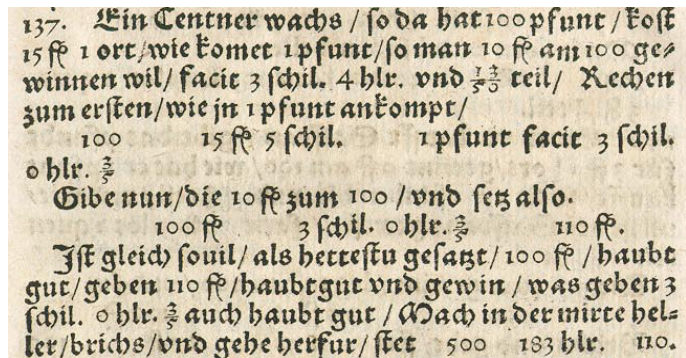 137. Ein Centner wachs / so da hat 100 pfunt / kost
15 fl 1 ort / wie komet 1 pfunt / so man 10 fl am 100 ge=
winnen wil / facit 3 schil. 4 hlr. vnd 13/50 teil / Rechen
zum ersten / wie jn 1 pfunt ankompt /
100 15 fl 5 schil. 1 pfunt facit 3 schil.
0 hlr. 3/5
Gibe nun / die 10 fl zum 100 / vnd setz also.
100 fl 3 schil. 0 hlr. 3/5 110 fl.
Ist gleich souil / als hettestu gesatzt / 100 fl / haubt
gut / geben 110 fl / haubtgut vnd gewin / was geben 3
schil. 0 hlr. 3/5 auch haubt gut / Mach in der mitte hel=
ler / brichs / vnd gehe herfur / stet 500 183 hlr. 110.